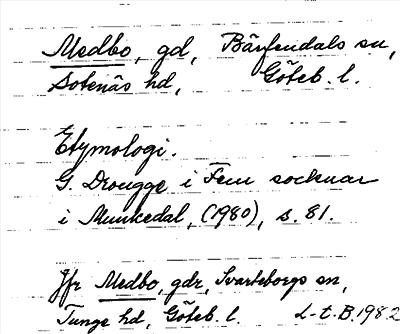 Medbo, gd, Bärfendals sn,
Sotenäs hd, Göteb. l.
Etymologi.
G. Drougge i Fem socknar
i Munkedal, (1980), s. 81.
Jfr Medbo, gdr, Svarteborgs sn,
Tunge hd, Göteb. l. L-t.B.1982